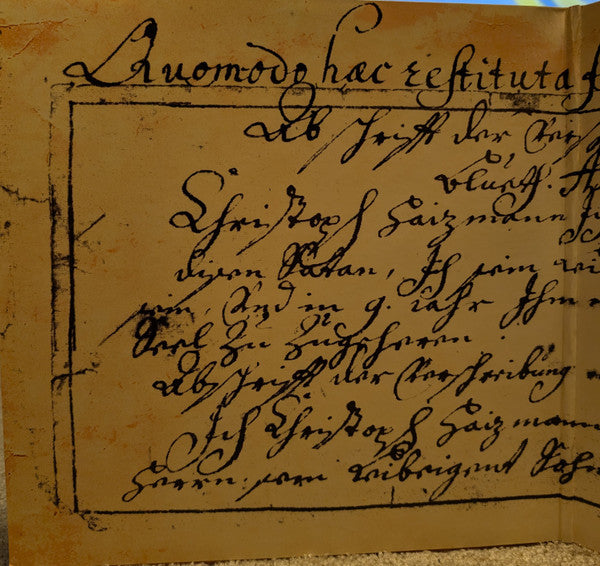 Quomodo hæc restituta
Abschrifft der Versch
blueth.
Christoph Haizmann
disen Satan, Ich sein
sein, Vnd in 9. iahr Ihm
Seel Zu Zugeheren.
Abschrifft der Verschreibung
Ich Christoph Haizmann
Herrn sein leibeigent Sohn